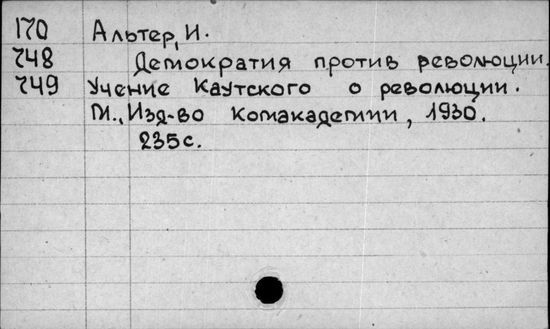 170 Альтер, И.
748 Демократия против революции.
749 Учение Каутского о революции.
М., Изд-во Комакадемии, 1930.
235с.